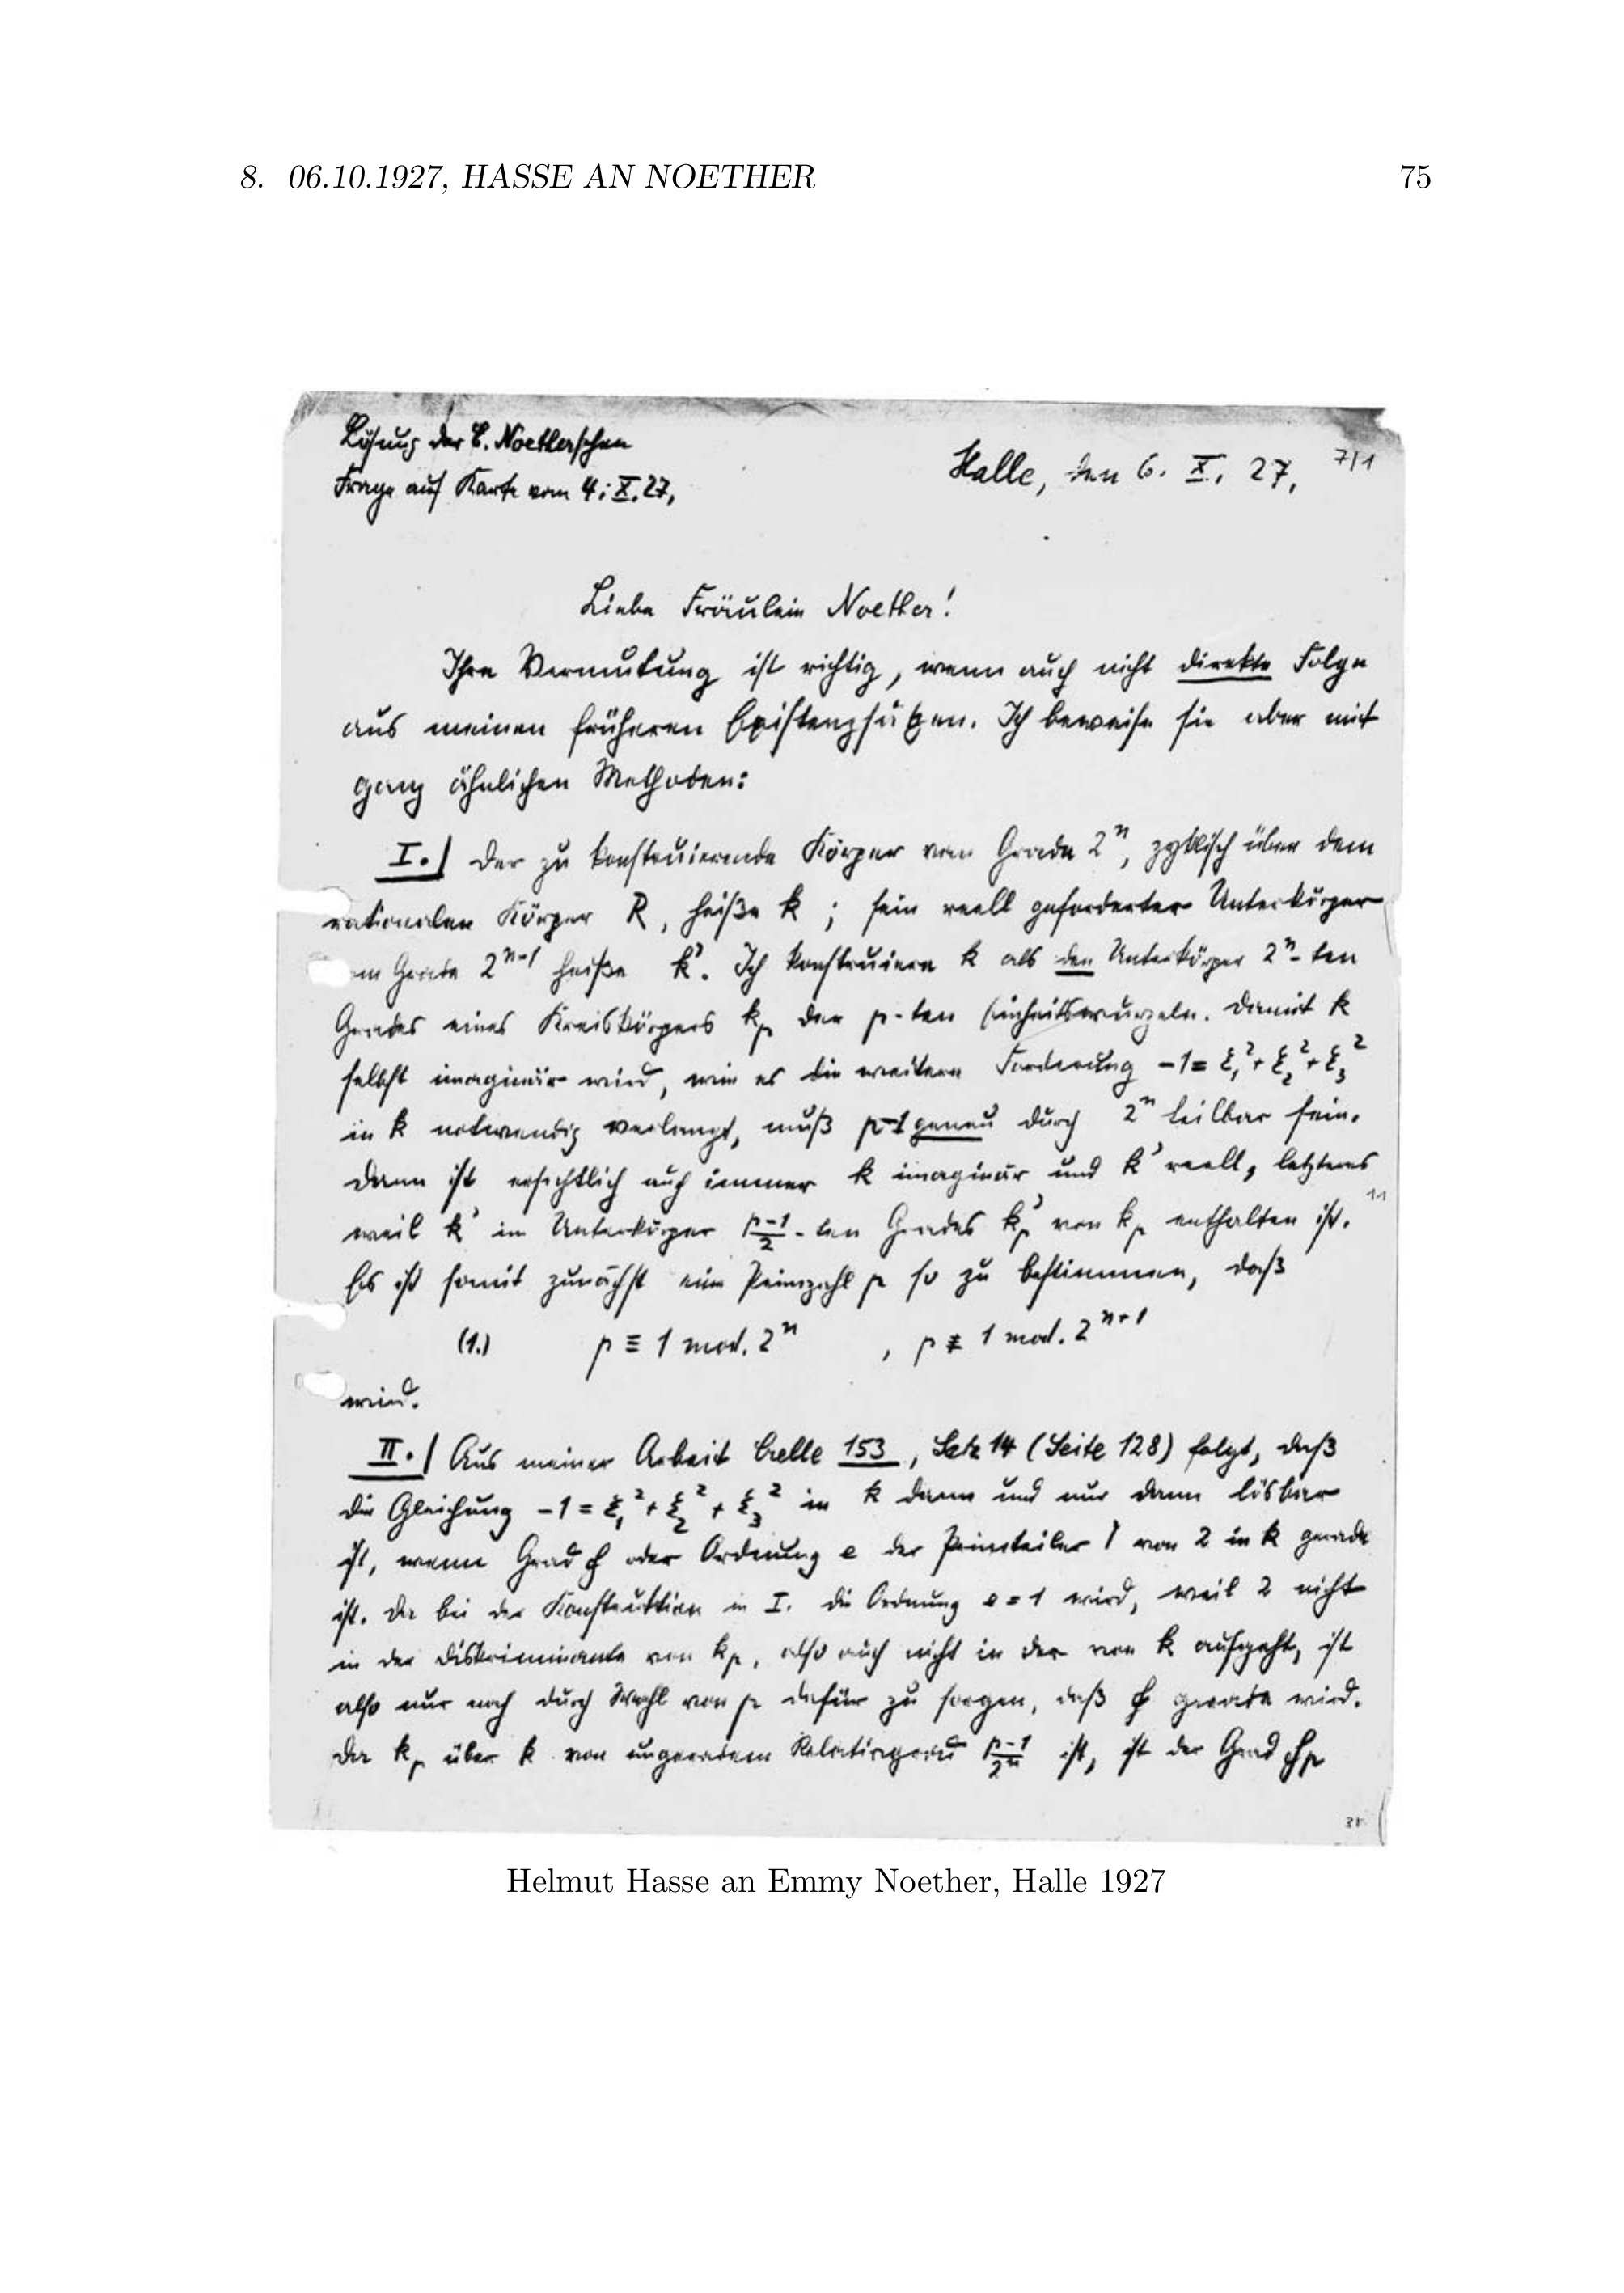 8. 06.10.1927, HASSE AN NOETHER 75
Lösung der E. Noetherschen
Frage auf Karte vom 4. X. 27.
Halle, den 6. X. 27. 7/1
Liebe Fräulein Noether!
Ihre Vermutung ist richtig, wenn auch nicht direkte Folge
aus meinen früheren Existenzsätzen. Ich beweise sie aber mit
ganz ähnlichen Methoden:
I.) Der zu konstruierende Körper vom Grade 2ⁿ, zyklisch über dem
rationalen Körper R, heiße k; sein reell geforderter Unterkörper
vom Grade 2ⁿ⁻¹ heiße k'. Ich konstruiere k als den Unterkörper 2ⁿ-ten
Grades eines Kreiskörpers kₚ der p-ten Einheitswurzeln. Damit k
selbst imaginär wird, wie es die weitere Forderung -1 = ξ₁² + ξ₂² + ξ₃²
in k notwendig verlangt, muß p-1 genau durch 2ⁿ teilbar sein.
Dann ist ersichtlich auch immer k imaginär und k' reell, letzteres
weil k' im Unterkörper (p-1)/2-ten Grades kₚ' von kₚ enthalten ist.
Es ist somit zunächst eine Primzahl p so zu bestimmen, daß
(1.) p ≡ 1 mod. 2ⁿ, p ≢ 1 mod. 2ⁿ⁺¹
wird.
II.) Aus meiner Arbeit Crelle 153, Satz 14 (Seite 128) folgt, daß
die Gleichung -1 = ξ₁² + ξ₂² + ξ₃² in k dann und nur dann lösbar
ist, wenn Grad f oder Ordnung e der Primteiler l von 2 in k gerade
ist. Da bei der Konstruktion in I. die Ordnung e = 1 wird, weil 2 nicht
in der Diskriminante von kₚ, also auch nicht in der von k aufgeht, ist
also nur noch durch Wahl von p dafür zu sorgen, daß f gerade wird.
Da kₚ über k von ungeradem Relativgrad (p-1)/2ⁿ ist, ist der Grad fₚ
Helmut Hasse an Emmy Noether, Halle 1927